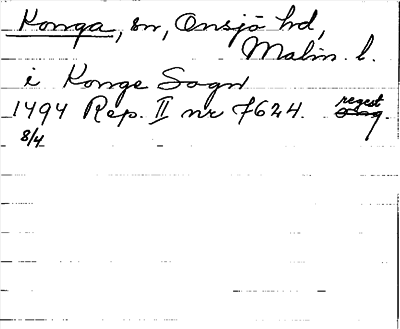 Konga, sn, Onsjö hd,
Malm. l.
i Konge Sogn
1494 Rep. II nr 7624. regest
8/4